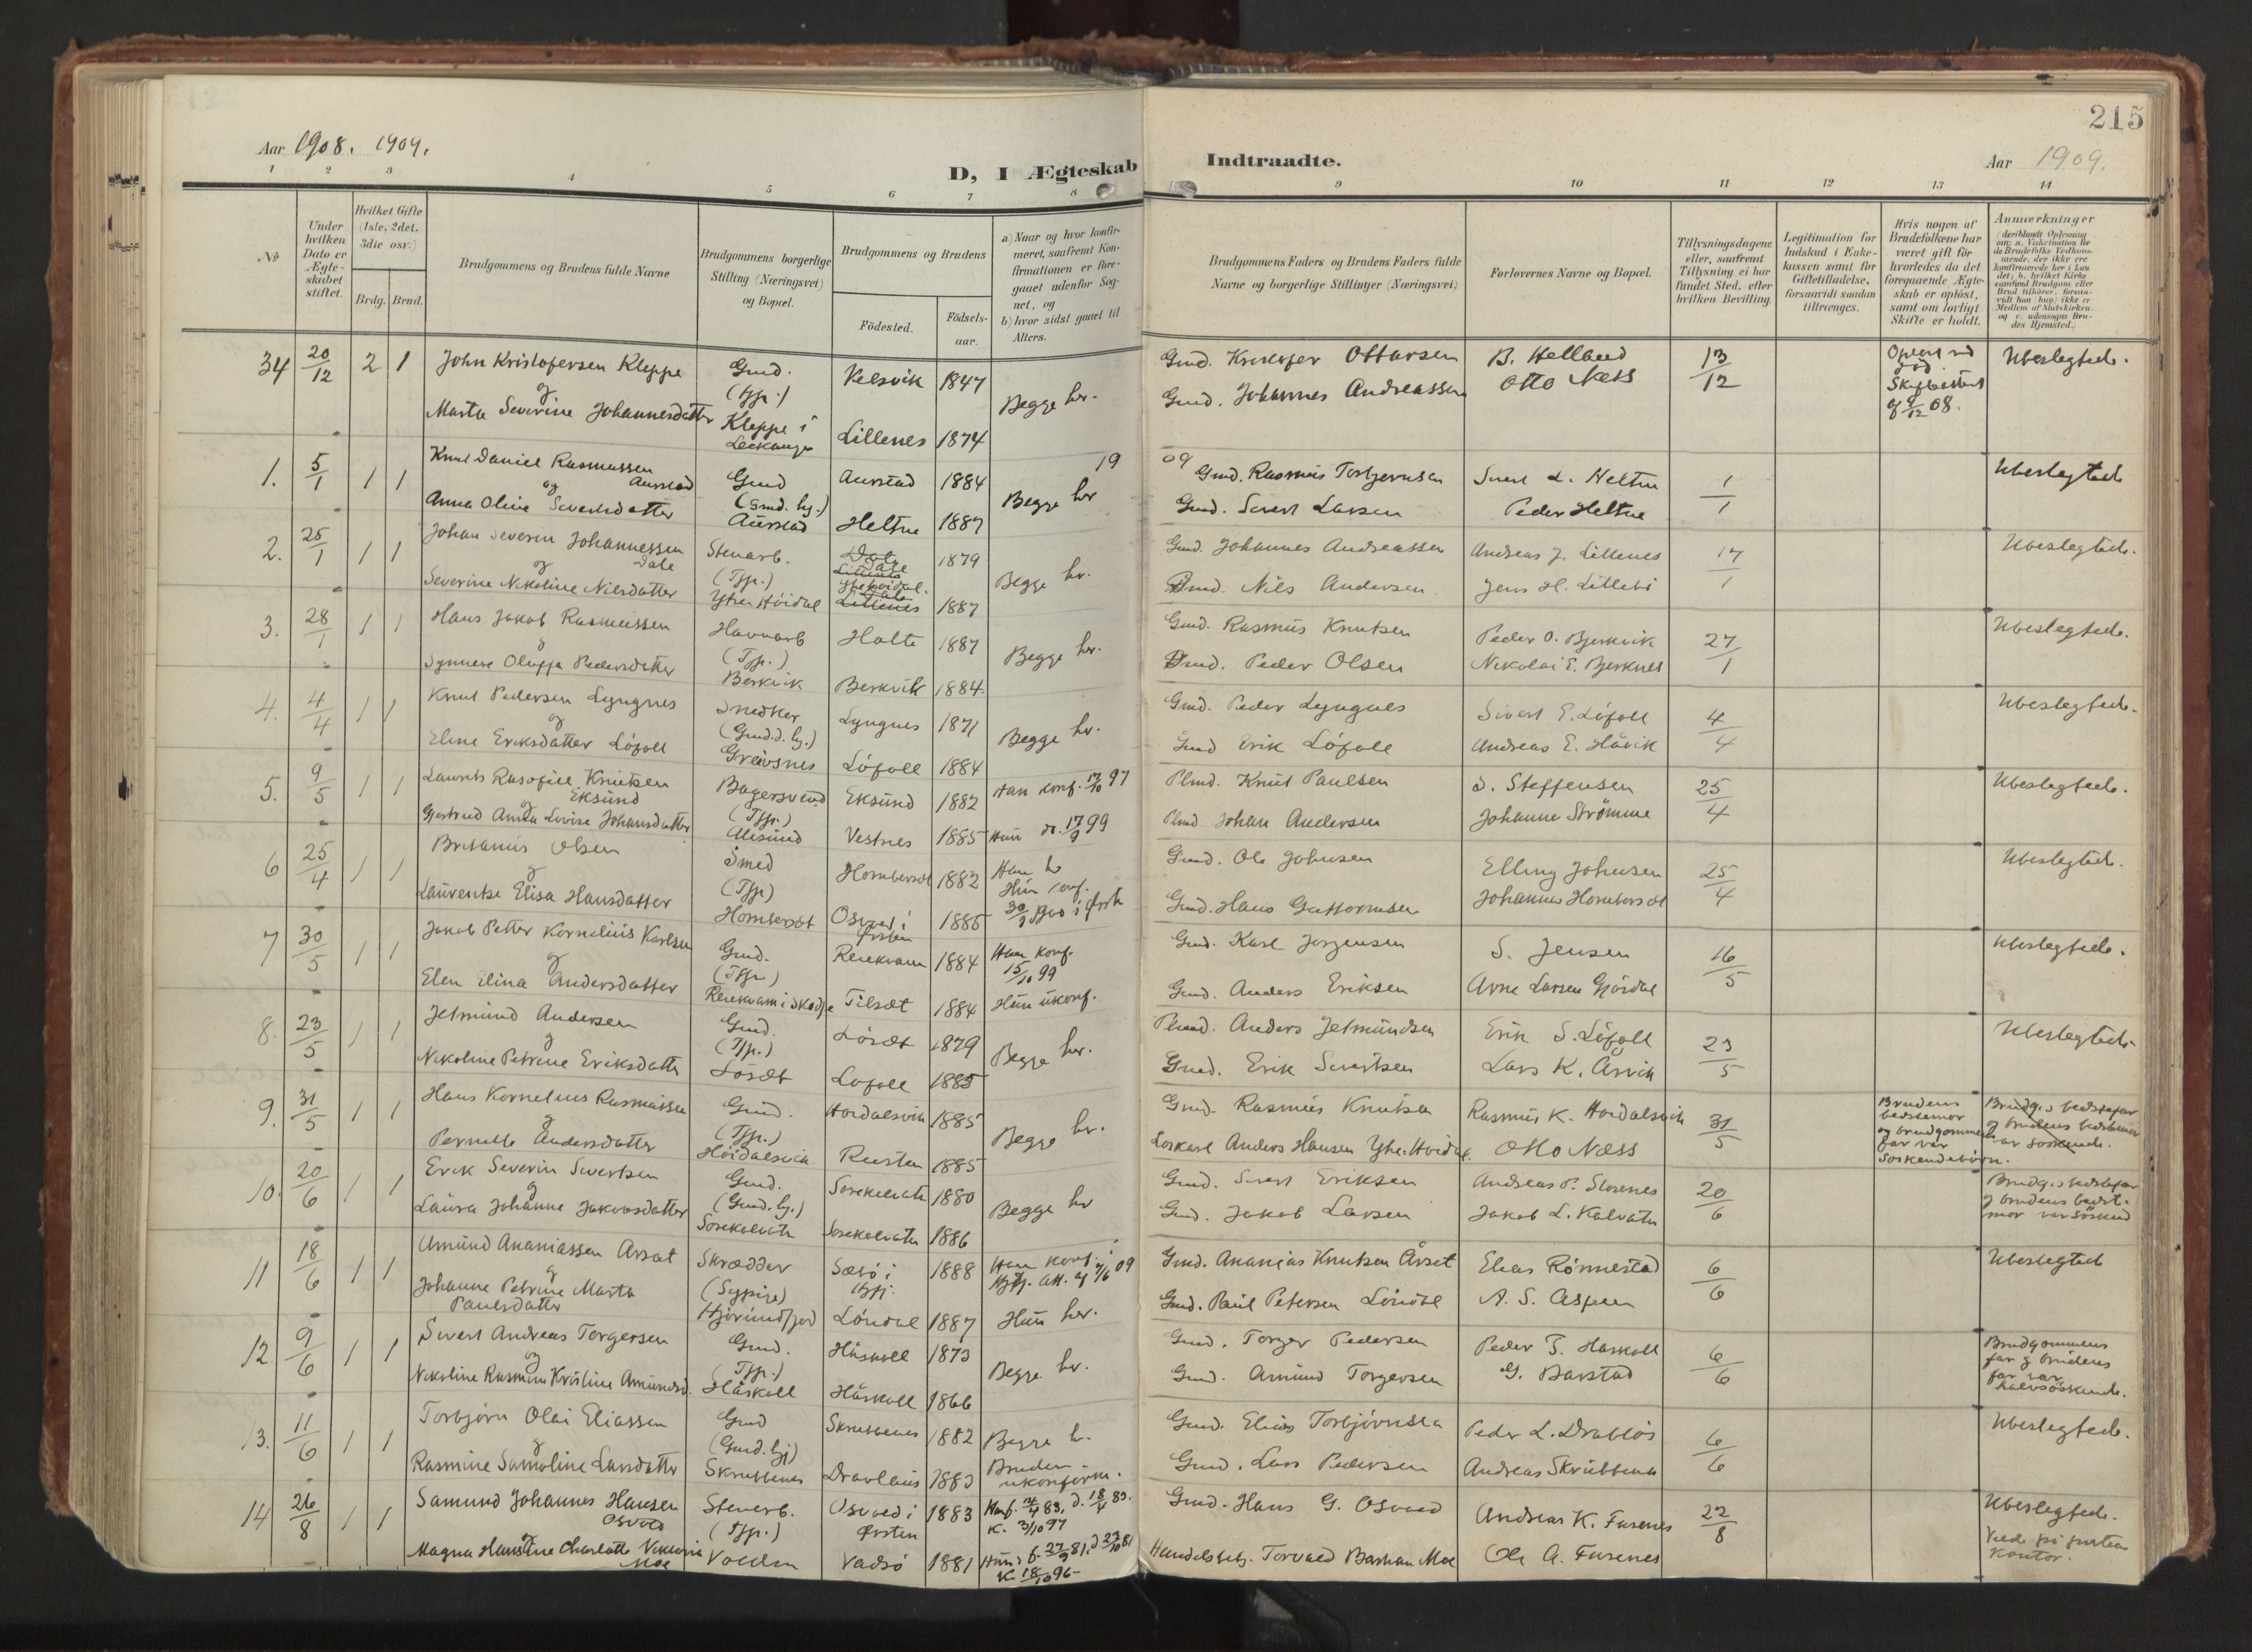 215
Aar 1908. 1909.
D, I Ægteskab Indtraadte.
Aar 1909.
1 2 3 4 5 6 7 8 9 10 11 12 13 14
No
Under hvilken Dato er Ægteskabet stiftet.
Hvilket Gifte (1ste, 2det, 3die osv.)
Brdg. Brud.
Brudgommens og Brudens fulde Navne
Brudgommens borgerlige Stilling (Næringsvei) og Bopæl.
Brudgommens og Brudens
Fødested.
Fødselsaar.
a) Naar og hvor konfirmeret, saafremt Konfirmationen er foregaaet udenfor Sognet, og
b) hvor sidst gaaet til Alters.
Brudgommens Faders og Brudens Faders fulde Navne og borgerlige Stillinger (Næringsvei)
Forlovernes Navne og Bopæl.
Tillysningsdagene eller, saafremt Tillysning ei har fundet Sted, efter hvilken Bevilling.
Legitimation for Indskud i Enkekassen samt for Giftetilladelse, forsaavidt saadan tiltrænges.
Hvis nogen af Brudefolkene har været gift før hvorledes da det foregaaende Ægteskab er opløst, samt om lovligt Skifte er holdt.
Anmærkninger
34 20/12 2 1 John Kristofersen Kleppe Gmd. Velsvik 1847 Begge her. Gmd. Kristofer Ottarsen B. Helland 13/12 Ubeslegtede.
og (Tjp.)
Marta Severine Johannesdatter Kleppe i Lillenes 1874 Gmd. Johannes Andreassen Otto Næss
19 09
1. 5/1 1 1 Knut Daniel Rasmussen Aurstad Gmd Aurstad 1884 Begge her Gmd. Rasmus Torbjernsen Sivert L. Heltne 1/1 Ubeslegtede
og (Gmd. hj.)
Anna Oline Sivertsdatter Aurstad Heltne 1887 Gmd. Sivert Larsen Peder Heltne
2. 25/1 1 1 Johan Severin Johannessen Dale Stenarb. Dale 1879 Begge hr. Gmd. Johannes Andreassen Andreas J. Lillenes 17/1 Ubeslegtede.
og (Tjp.)
Severine Nikoline Nilsdatter Ytre-Høidal Lillenes 1887 Nils Andersen Jens H. Lillebø
3. 28/1 1 1 Hans Jakob Rasmussen Havnarb Holte 1887 Begge hr. Gmd. Rasmus Knutsen Peder O. Bjerkvik 27/1 Ubeslegtede.
og (Tjp.)
Synneve Oluffa Pedersdatter Berkvik Berkvik 1884. Peder Olsen Nikolai E. Bjerknes
4. 4/4 1 1 Knut Pedersen Lyngnes Snedker Lyngnes 1871 Begge hr. Gmd. Peder Lyngnes Sivert E. Löfoll 4/4 Ubeslegtede.
og (Gmd.d. hj.)
Eline Eriksdatter Löfoll Greivsnes Löfoll 1884 Gmd Erik Löfoll Andreas E. Håvik
5. 9/5 1 1 Laurits Knutsen Eksund Bagersvend Eksund 1882 Han konf. 97 Plmd. Knut Paulsen S. Steffensen 25/4 Ubeslegtede.
og (Tjp.)
Gjertrud Anna Lovise Johansdatter Alesund Vestnes 1885 Hun 17/9 99 Plmd Johan Andersen Johannes Strömme
6 25/4 1 1 Olsen Smed Hornbersæt 1882 Han h Gmd. Ole Johnsen Elling Johnsen 25/4 Ubeslegtede.
og (Tjp) Hun conf.
Laurentse Elisa Hansdatter Hornbersæt Osvoll i Örsten 1885 Gmd. Hans Guttormsen Johannes Hornbersæt
7 30/5 1 1 Jakob Petter Kornelius Karlsen Gmd. Renekvam 1884 Han konf. 15/10 99 Gmd. Karl Jorgensen S. Jensen 16/5 Ubeslegtede.
og (Tjp.)
Elen Elina Andersdatter Renekvam i Skodje Tilset 1884 Hun ukonf. Gmd. Anders Eriksen Arne Larsen Gjördal
8. 23/5 1 1 Jetmund Andersen Gmd. Lösæt 1879 Begge hr. Plmd. Anders Jetmundsen Erik S. Löfoll 23/5 Ubeslegtede.
og (Tjp.)
Nikoline Petrine Eriksdatter Lösæt Lofoll 1885 Gmd. Erik Sivertsen Lars K. Årvik
9. 31/5 1 1 Hans Kornelius Rasmussen Gmd. Hoidalsvik 1885 Begge hr. Gmd. Rasmus Knutsen Rasmus K. Hoidalsvik 31/5 Brudens bedstemor og brudgommens far var Soskendebörn. Brudg.s bedstefar og brudens bedstemor var soskende.
og (Tjp.)
Pernille Andersdatter Höidalsvik Rusten 1885 Loskarl Anders Hansen Ytre Hoidal Otto Næss
10. 20/6 1 1 Erik Severin Sivertsen Gmd. Sorekolvatn 1880 Begge hr Gmd. Sivert Eriksen Andreas P. Storenes 20/6 Brudg.s bedstefar og brudens bedstmor var söskend
og (Gmd. hj.)
Laura Johanne Jakobsdatter Sorekolvatn Sorekolvatn 1886 Gmd. Jakob Larsen Jakob L. Kolvatn
11 18/6 1 1 Amund Ananiassen Årset Skrædder Sæbö i Hjfj. 1888 Han konf. i Hjfj. att. af 7/6 09 Gmd. Ananias Knutsen Årset Elias Rönnestad 6/6 Ubeslegtede
og (Sypige)
Johanne Petrine Marta Paulsdatter Hjörundfjord Löndal 1887 Hun her. Gmd. Paul Petersen Löndal A. S. Aspen
12. 9/6 1 1 Sivert Andreas Torgersen Gmd. Håskoll 1873 Begge hr. Gmd. Torger Pedersen Peder T. Haskoll 6/6 Brudgommens far og brudens far var halvsöskende.
og (Tjp.)
Nikoline Rasmine Kristine Amundsd. Håskoll Håskoll 1866 Gmd. Amund Torgersen G. Barstad
13. 11/6 1 1 Torbjörn Olai Eliassen Gmd Skrubbenes 1882 Begge h. Gmd. Elias Torbjörnsen Peder L. Drablös 6/6 Ubeslegtede.
og (Gmd. hj)
Rasmine Samoline Larsdatter Skrubbenes Dravlaus 1883 Bruden ukonfirm. Gmd. Lars Pedersen Andreas Skrubbenes
14 26/8 1 1 Samund Johannes Hansen Osvold Stenarb. Osvold i Örsten 1883 K. 3/10 97 Gmd. Hans G. Osvold Andreas K. Fusenes 22/8 Ubeslegtede.
og (Tjp.)
Magna Hansine Charlotte Viktoria Moe Volden Vadsö 1881 K. 18/10 96 Handelsbet. Torvald Moe Ole A. Fusenes